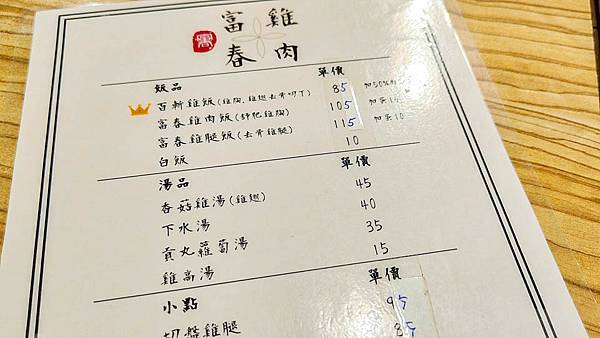 富雞
春肉
飯品 單價
百斬雞飯(雞胸,雞翅去骨切丁) 85 加50%
富春雞肉飯(舒肥雞胸) 105
富春雞腿飯(去骨雞腿) 115 加蛋10
白飯 10
湯品 單價
香菇雞湯(雞翅) 45
下水湯 40
貢丸蘿蔔湯 35
雞高湯 15
小點 單價
切盤雞腿 95
85